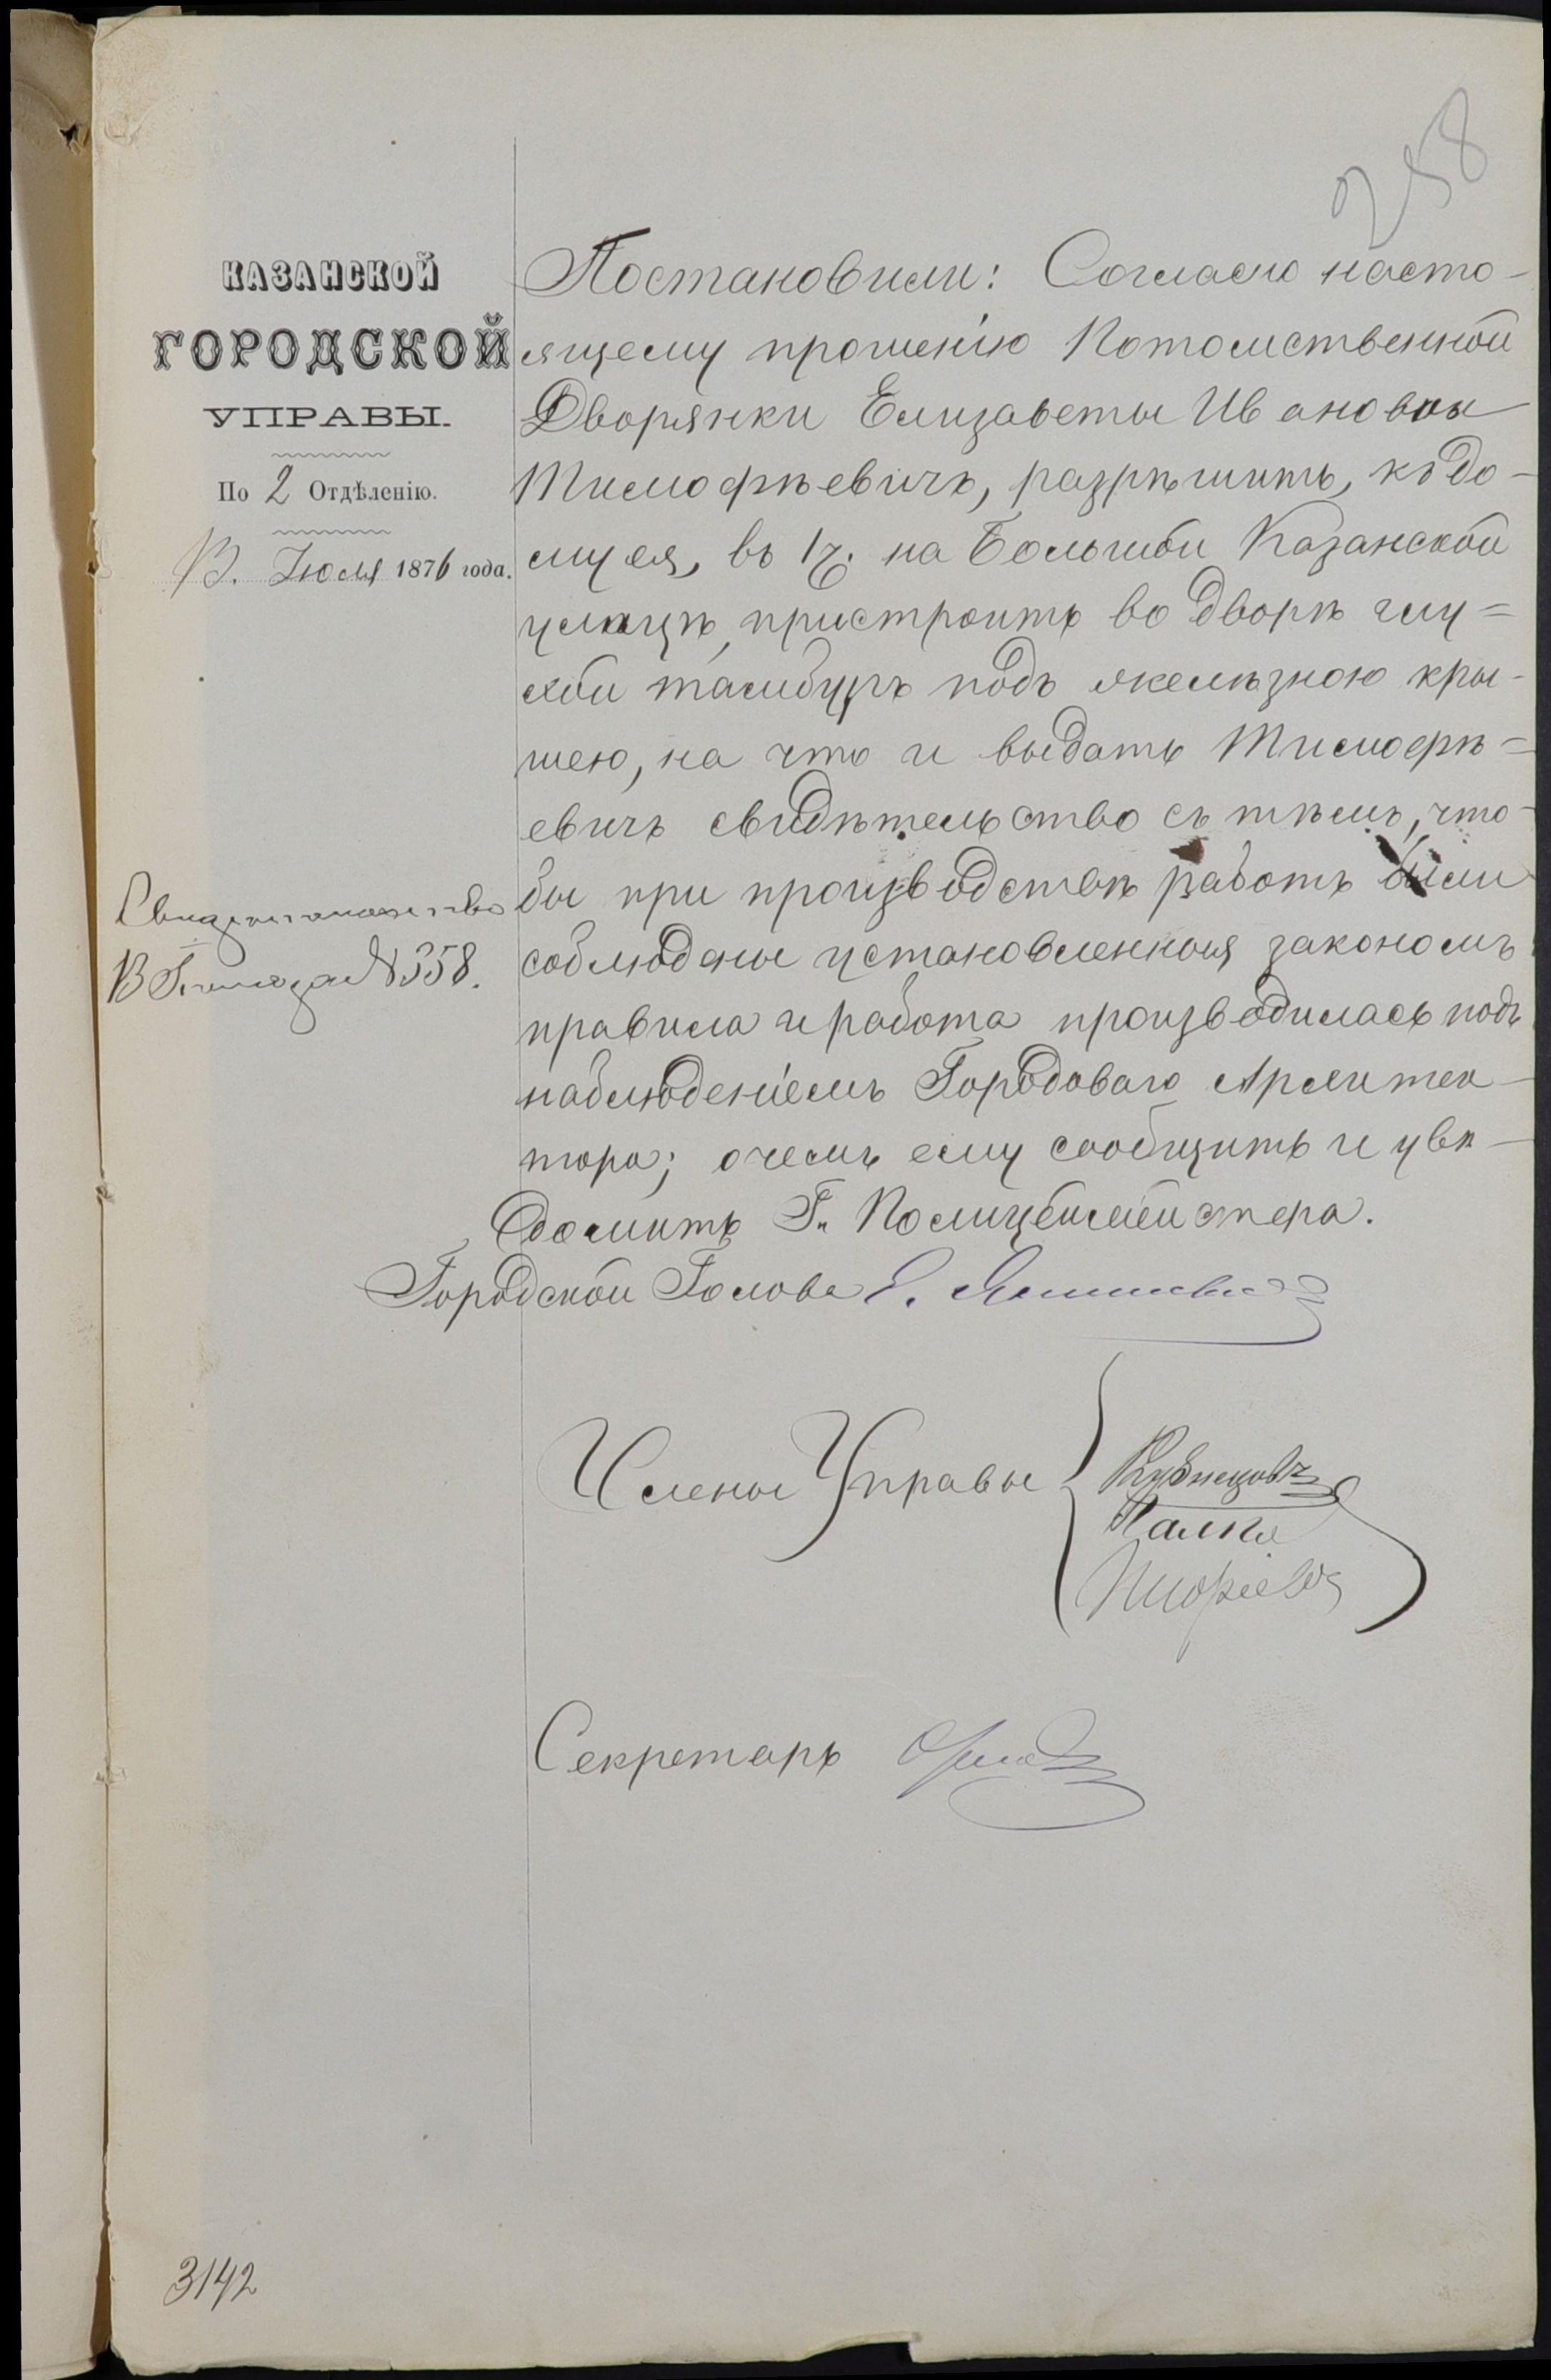 258
КАЗАНСКОЙ
ГОРОДСКОЙ
УПРАВЫ.
По 2 Отдѣленію.
13. Іюля 1876 года.
Постановили: Согласно насто-
ящему прошенію Потомственной
Дворянки Елизаветы Ивановны
Тимофѣевичъ, разрѣшить, къ до-
му ея, въ 1 ч. на Большой Казанской
улицѣ, пристроить во дворѣ глу=
хой тамбуръ подъ желѣзною кры-
шею, на что и выдать Тимофѣ=
евичъ свидѣтельство съ тѣмъ, что-
бы при производствѣ работъ были
соблюдены установленныя закономъ
правила и работа производилась подъ
наблюденіемъ Городоваго Архитек-
тора; о чемъ ему сообщить и увѣ-
домить Г. Полицеймейстера.
Свидѣтельство
№ 358.
Городской Голова Э. Янишевскій
Члены Управы
Кузнецовъ
Секретарь
3142